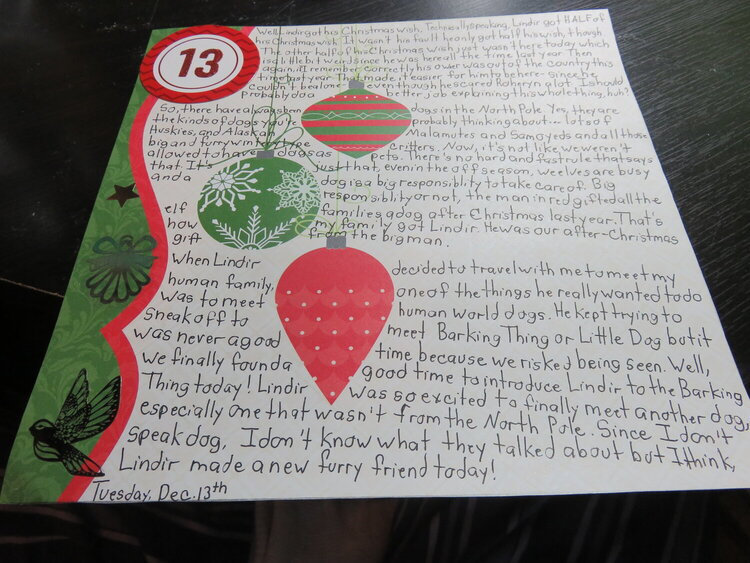 13
Well, Lindir got his Christmas wish. Technically speaking, Lindir got HALF of
his Christmas wish. It wasn't his fault he only got half his wish, though.
The other half of his Christmas wish just wasn't here today which
is a little bit weird since he was here all the time last year. Then
again, if I remember correctly his ower was out of the country this
time last year. That made it easier for him to be here - since he
couldn't be alone even though he scared Romeryn a lot. I should
probably do a better job explaining this whole thing, huh?
So, there have always been dogs in the North Pole. Yes, they are
the kinds of dogs you're probably thinking about... lots of
Huskies, and Alaskan Malamutes and Samoyeds and all those
big and furry winter type critters. Now, it's not like we weren't
allowed to have dogs as pets. There's no hard and fast rule that says
that. It's just that, even in the off season, we elves are busy
and a dog is a big responsibility to take care of. Big
responsibility or not, the man in red gifted all the
elf families a dog after Christmas last year. That's
how my family got Lindir. He was our after-Christmas
gift from the big man.
When Lindir decided to travel with me to meet my
human family, one of the things he really wanted to do
was to meet human world dogs. He kept trying to
sneak off to meet Barking Thing or Little Dog but it
was never a good time because we risked being seen. Well,
we finally found a good time to introduce Lindir to the Barking
Thing today! Lindir was so excited to finally meet another dog,
especially one that wasn't from the North Pole. Since I don't
speak dog, I don't know what they talked about but I think,
Lindir made a new furry friend today!
Tuesday, Dec. 13th